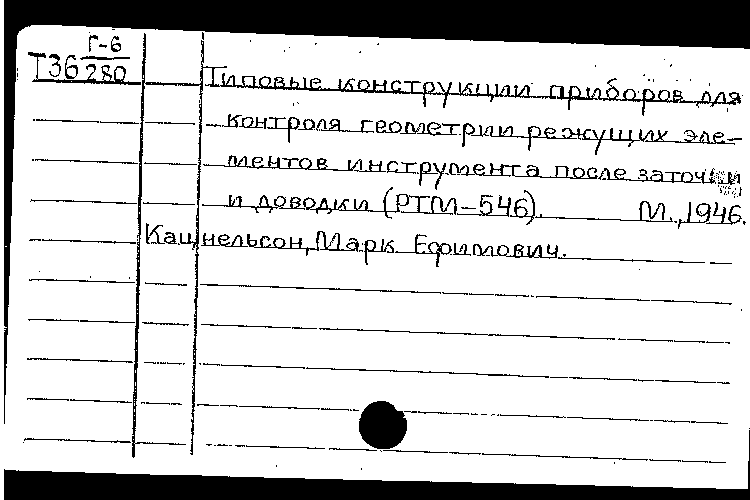 Г-6
Т36 280
Типовые конструкции приборов для
контроля геометрии режущих эле-
ментов инструмента после заточки
и доводки (РТМ-546). М.,1946.
Кацнельсон, Марк Ефимович.